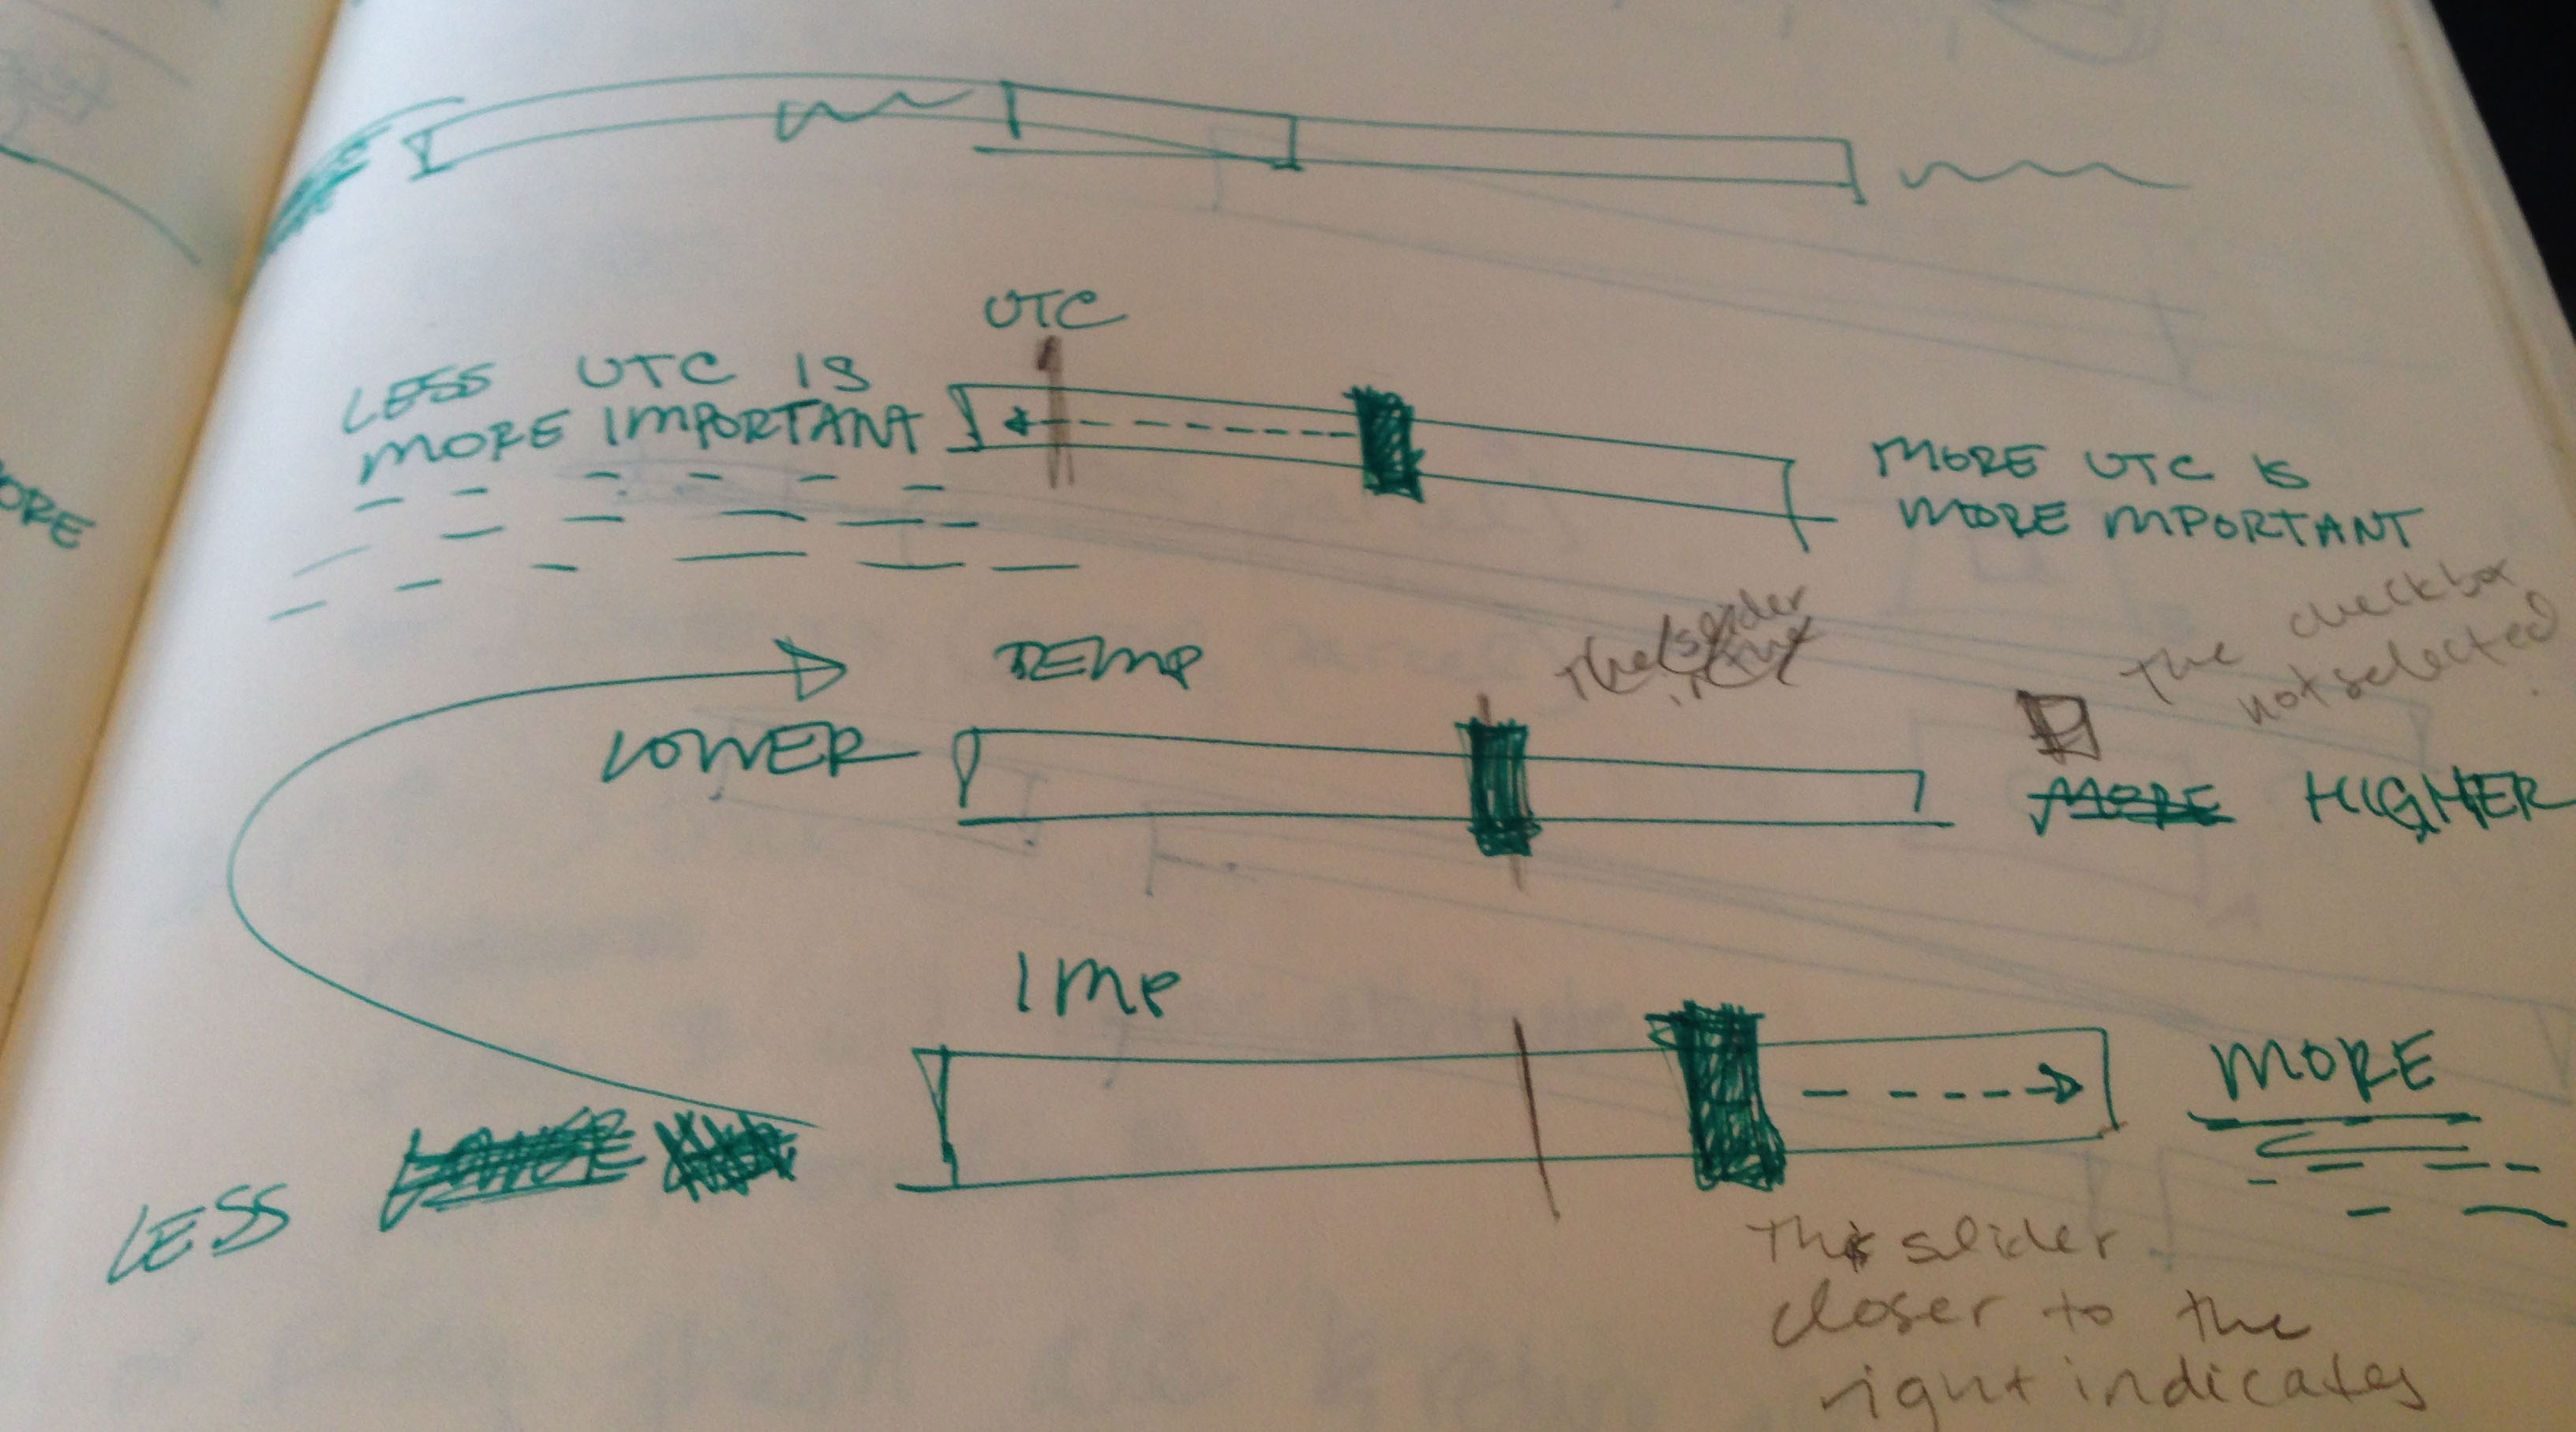 UTC
LESS UTC IS
MORE IMPORTANT
MORE UTC IS
MORE MPORTANT
ORE
TEMP
The slider
The checkbox
not selected
LOWER
MORE HIGHER
IMP
MORE
LESS
This slider
closer to the
right indicates